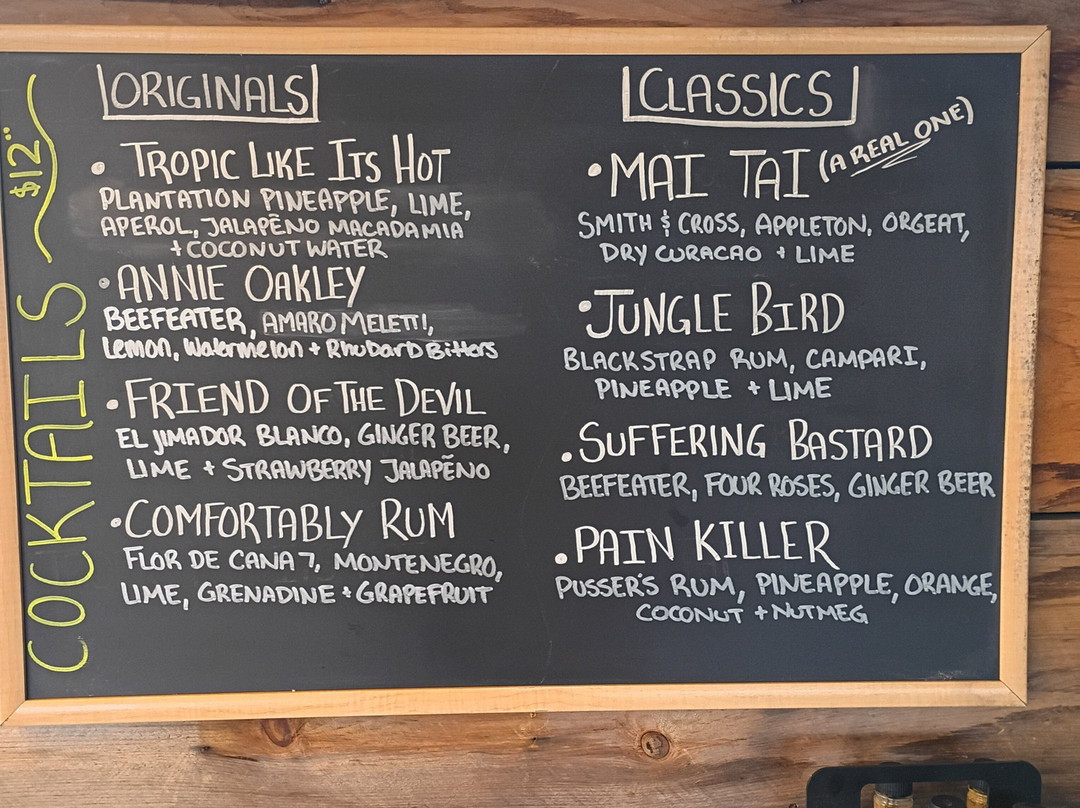 COCKTAILS $12⁰⁰
ORIGINALS
• TROPIC LIKE ITS HOT
PLANTATION PINEAPPLE, LIME,
APEROL, JALAPEÑO MACADAMIA
+ COCONUT WATER
• ANNIE OAKLEY
BEEFEATER, AMARO MELETTI,
Lemon, Watermelon + Rhubarb Bitters
• FRIEND OF THE DEVIL
EL JIMADOR BLANCO, GINGER BEER,
LIME + STRAWBERRY JALAPEÑO
• COMFORTABLY RUM
FLOR DE CANA 7, MONTENEGRO,
LIME, GRENADINE + GRAPEFRUIT
CLASSICS
• MAI TAI (A REAL ONE)
SMITH & CROSS, APPLETON, ORGEAT,
DRY CURACAO + LIME
• JUNGLE BIRD
BLACKSTRAP RUM, CAMPARI,
PINEAPPLE + LIME
• SUFFERING BASTARD
BEEFEATER, FOUR ROSES, GINGER BEER
• PAIN KILLER
PUSSER'S RUM, PINEAPPLE, ORANGE,
COCONUT + NUTMEG